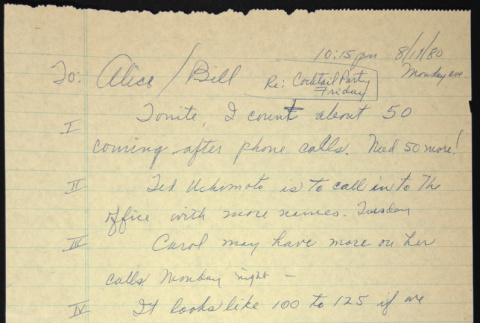 10:15 pm 8/11/80
To: Alice / Bill Re: Cocktail Party Monday eve.
Friday
I Tonite, I count about 50
coming after phone calls. Need 50 more!
II Ted Uchimoto is to call in to the
office with more names. Tuesday
III Carol may have more on her
calls Monday night —
IV It looks like 100 to 125 if we